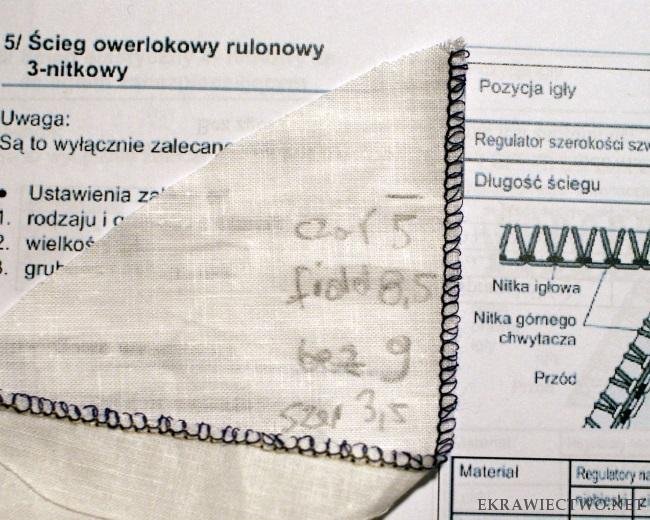 5/ Ścieg owerlokowy rulonowy
3-nitkowy
Uwaga:
Są to wyłącznie zalecane
• Ustawienia
1. rodzaju i
2. wielkoś
3. grub
czar 5
fiold 8,5
beż 9
szer 3,5
Pozycja igły
Regulator szerokości szw
Długość ściegu
Nitka igłowa
Nitka górnego
chwytacza
Przód
Materiał
Regulatory na
niebieski
EKRAWIECTWO.NET